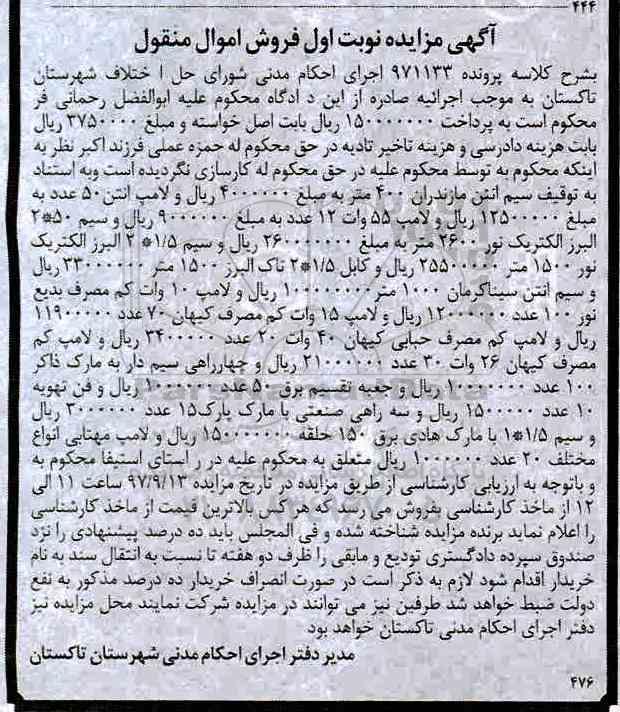 ۴۴۴
آگهی مزایده نوبت اول فروش اموال منقول
بشرح کلاسه پرونده ۹۷۱۱۳۳ اجرای احکام مدنی شورای حل ا ختلاف شهرستان
تاکستان به موجب اجرائیه صادره از این د ادگاه محکوم علیه ابوالفضل رحمانی فر
محکوم است به پرداخت ۱۵۰۰۰۰۰۰۰ ریال بابت اصل خواسته و مبلغ ۳۷۵۰۰۰۰ ریال
بابت هزینه دادرسی و هزینه تاخیر تادیه در حق محکوم له حمزه عملی فرزند اکبر نظر به
اینکه محکوم به توسط محکوم علیه در حق محکوم له کارسازی نگردیده است وبه استناد
به توقیف سیم آنتن مازندران ۴۰۰ متر به مبلغ ۴۰۰۰۰۰۰ ریال و لامپ آنتن ۵۰ عدد به
مبلغ ۱۲۵۰۰۰۰۰ ریال و لامپ ۵۵ وات ۱۲ عدد به مبلغ ۹۰۰۰۰۰۰ ریال و سیم ۵۰*۲
البرز الکتریک نور ۲۶۰۰ متر به مبلغ ۲۶۰۰۰۰۰۰ ریال و سیم ۱/۵* ۲ البرز الکتریک
نور ۱۵۰۰ متر ۲۵۵۰۰۰۰۰ ریال و کابل ۱/۵*۲ تاک البرز ۱۵۰۰ متر ۳۳۰۰۰۰۰۰ ریال
و سیم آنتن سیناکرمان ۱۰۰۰ متر ۱۰۰۰۰۰۰۰ ریال و لامپ ۱۰ وات کم مصرف بدیع
نور ۱۰۰ عدد ۱۲۰۰۰۰۰۰ ریال و لامپ ۱۵ وات کم مصرف کیهان ۷۰ عدد ۱۱۹۰۰۰۰۰
ریال و لامپ کم مصرف حبابی کیهان ۴۰ وات ۲۰ عدد ۳۴۰۰۰۰۰ ریال و لامپ کم
مصرف کیهان ۲۶ وات ۳۰ عدد ۲۱۰۰۰۰۰ ریال و چهارراهی سیم دار به مارک ذاکر
۱۰۰ عدد ۱۰۰۰۰۰۰۰ ریال و جعبه تقسیم برق ۵۰ عدد ۱۰۰۰۰۰۰ ریال و فن تهویه
۱۰ عدد ۱۵۰۰۰۰۰ ریال و سه راهی صنعتی با مارک پارک ۱۵ عدد ۳۰۰۰۰۰۰ ریال
و سیم ۱/۵*۱ با مارک هادی برق ۱۵۰ حلقه ۱۵۰۰۰۰۰۰ ریال و لامپ مهتابی انواع
مختلف ۲۰ عدد ۱۰۰۰۰۰۰ ریال متعلق به محکوم علیه در ر استای استیفا محکوم به
و باتوجه به ارزیابی کارشناسی از طریق مزایده در تاریخ مزایده ۹۷/۹/۱۳ ساعت ۱۱ الی
۱۲ از ماخذ کارشناسی بفروش می رسد که هر کس بالاترین قیمت از ماخذ کارشناسی
را اعلام نماید برنده مزایده شناخته شده و فی المجلس باید ده درصد پیشنهادی را نزد
صندوق سپرده دادگستری تودیع و مابقی را ظرف دو هفته تا نسبت به انتقال سند به نام
خریدار اقدام شود لازم به ذکر است در صورت انصراف خریدار ده درصد مذکور به نفع
دولت ضبط خواهد شد طرفین نیز می توانند در مزایده شرکت نمایند محل مزایده نیز
دفتر اجرای احکام مدنی تاکستان خواهد بود
مدیر دفتر اجرای احکام مدنی شهرستان تاکستان
۴۷۶